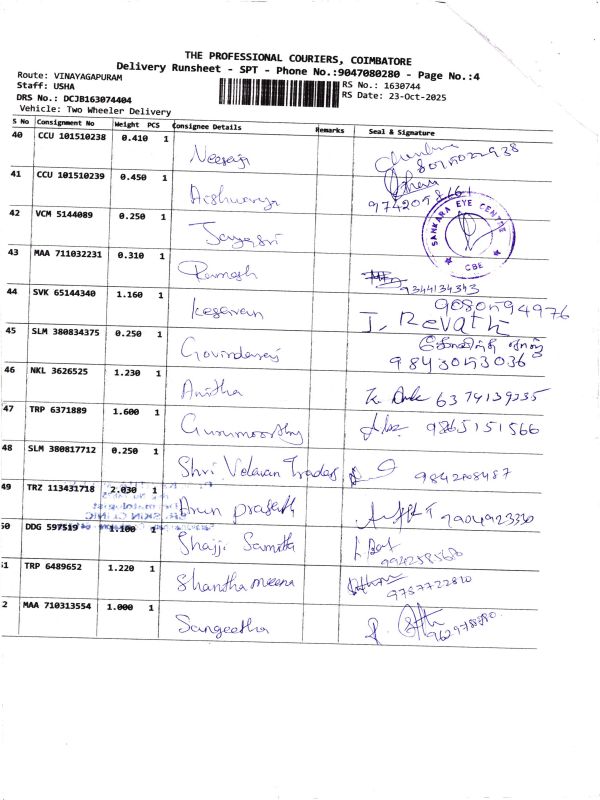 THE PROFESSIONAL COURIERS, COIMBATORE
Delivery Runsheet - SPT - Phone No.:9047080280 - Page No.:4
Route: VINAYAGAPURAM
Staff: USHA
RS No.: 1630744
DRS No.: DCJB163074404
RS Date: 23-Oct-2025
Vehicle: Two Wheeler Delivery
S No Consignment No Weight PCS Consignee Details Remarks Seal & Signature
40 CCU 101510238 0.410 1 Neeraja
41 CCU 101510239 0.450 1 Aishwarya
SANKARA EYE CENTRE
CBE
42 VCM 5144089 0.250 1 Jayasri
43 MAA 711032231 0.310 1 Ramesh 9344134343
44 SVK 65144340 1.160 1 Kesavan 9080594976
J. Revathi
45 SLM 380834375 0.250 1 Govindaraj
9843053036
46 NKL 3626525 1.230 1 Anitha 6374139235
47 TRP 6371889 1.600 1 Gurumoorthy 9865151566
48 SLM 380817712 0.250 1 Shri Velavan Traders 9842208487
49 TRZ 113431718 2.030 1 Arun prasath 7904923330
50 DDG 597519 1.100 1 Shajji Samitha
51 TRP 6489652 1.220 1 Shantha meena 9787722810
2 MAA 710313554 1.000 1 Sangeetha